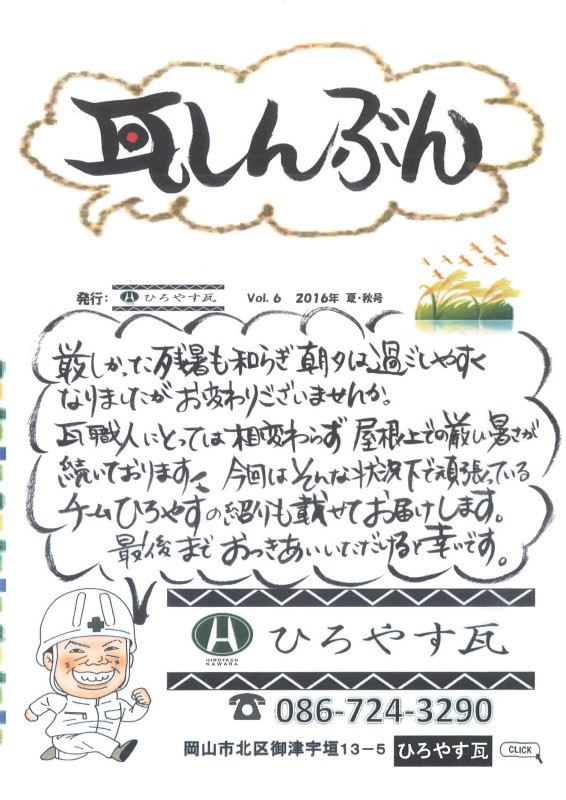 瓦しんぶん
発行： ひろやす瓦 Vol. 6 2016年 夏・秋号
厳しかった残暑も和らぎ朝夕は過ごしやすく
なりましたがお変わりございませんか。
瓦職人にとっては相変わらず屋根上での厳しい暑さが
続いておりますが、今回はそんな状況下で頑張っている
チームひろやすの紹介も載せてお届けします。
最後までおつきあいいただけると幸いです。
HIROYASU
KAWARA
ひろやす瓦
☎ 086-724-3290
岡山市北区御津宇垣13－5 ひろやす瓦 CLICK